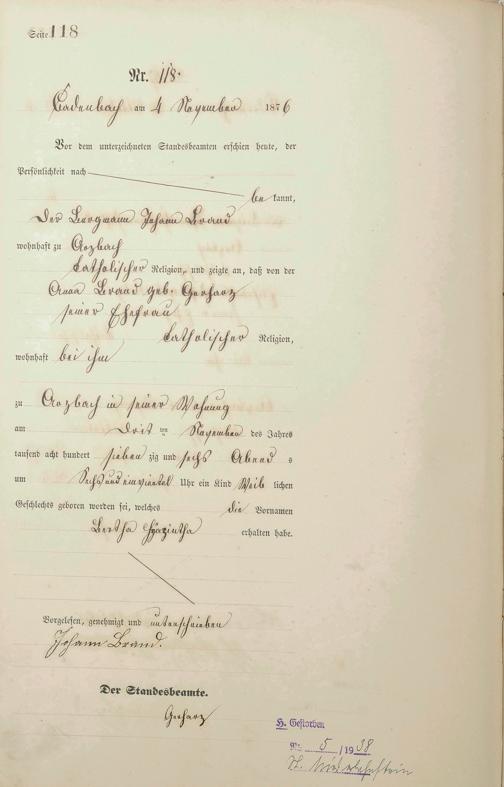 Seite 118
Nr. 118.
Cadenbach am 4 November 1876
Vor dem unterzeichneten Standesbeamten erschien heute, der
Persönlichkeit nach
be kannt,
der Bergmann Johann Brand
wohnhaft zu Arzbach
katholischer Religion, und zeigte an, daß von der
Anna Brand geb. Gerharz
seiner Ehefrau
katholischer Religion,
wohnhaft bei ihm
zu Arzbach in seiner Wohnung
am Drit ten November des Jahres
tausend acht hundert sieben zig und sechs Abend s
um Sechs und einviertel Uhr ein Kind Weib lichen
Geschlechts geboren worden sei, welches die Vornamen
Bertha Hyazintha erhalten habe.
Vorgelesen, genehmigt und unterschrieben
Johann Brand.
Der Standesbeamte.
Gerharz
H. Gestorben
Nr. 5 / 19 38
St. Niederlahnstein